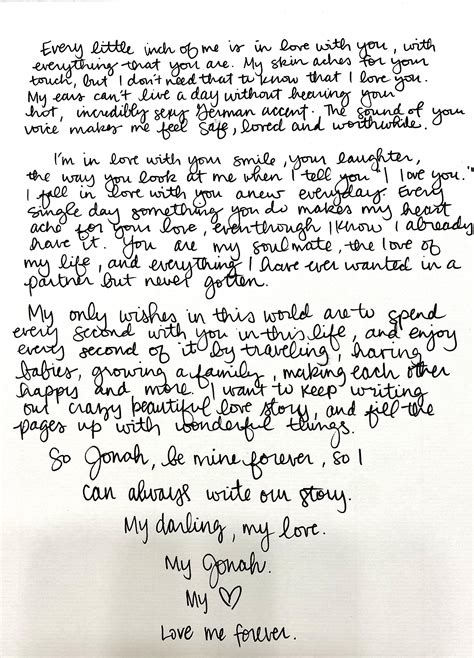 Every little inch of me is in love with you, with
everything that you are. My skin aches for your
touch, but I don't need that to know that I love you.
My ears can't live a day without hearing your
hot, incredibly sexy German accent. The sound of your
voice makes me feel safe, loved and worthwhile.
I'm in love with your smile, your laughter,
the way you look at me when I tell you "I love you."
I fall in love with you anew everyday. Every
single day something you do makes my heart
ache for your love, even though I know I already
have it. You are my soulmate, the love of
my life, and everything I have ever wanted in a
partner but never gotten.
My only wishes in this world are to spend
every second with you in this life, and enjoy
every second of it by traveling, having
babies, growing a family, making each other
happy and more. I want to keep writing
our crazy beautiful love story, and fill the
pages up with wonderful things.
So Jonah, be mine forever, so I
can always write our story.
My darling, my love.
My Jonah.
My ♡
Love me forever.